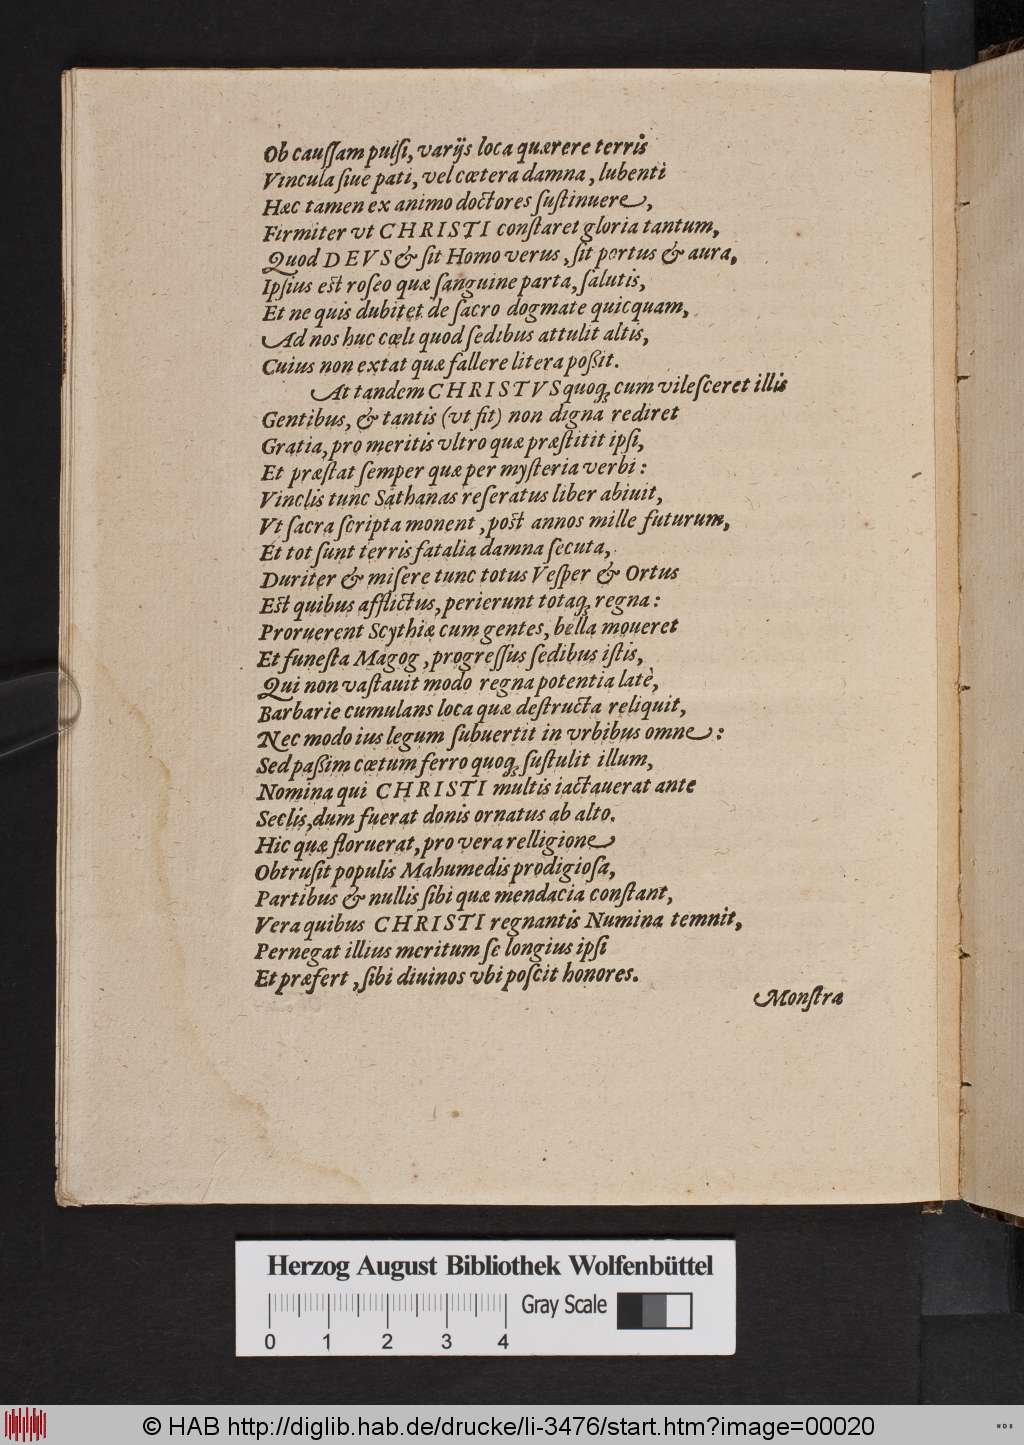 Ob cauſſam pulſi, varijs loca quærere terris
Vincula ſiue pati, vel cœtera damna, lubenti
Hæc tamen ex animo doctores ſuſtinuere,
Firmiter vt CHRISTI conſtaret gloria tantum,
Quod DEVS & ſit Homo verus, ſit portus & aura,
Ipſius est roſeo quæ ſanguine parta, ſalutis,
Et ne quis dubitet de ſacro dogmate quicquam,
Ad nos huc cœli quod ſedibus attulit altis,
Cuius non extat quæ fallere litera poßit.
At tandem CHRISTVS quoq; cum vileſceret illis
Gentibus, & tantis (vt fit) non digna rediret
Gratia, pro meritis vltro quæ præſtitit ipſi,
Et præſtat ſemper quæ per myſteria verbi:
Vinclis tunc Sathanas reſeratus liber abiuit,
Vt ſacra ſcripta monent, post annos mille futurum,
Et tot ſunt terris fatalia damna ſecuta,
Duriter & miſere tunc totus Veſper & Ortus
Est quibus afflictus, perierunt totaq; regna:
Proruerent Scythiæ cum gentes, bella moueret
Et funeſta Magog, progreſſus ſedibus iſtis,
Qui non vaſtauit modo regna potentia latè,
Barbarie cumulans loca quæ deſtructa reliquit,
Nec modo ius legum ſubuertit in vrbibus omne:
Sed paßim cœtum ferro quoq; ſuſtulit illum,
Nomina qui CHRISTI multis iactauerat ante
Seclis, dum fuerat donis ornatus ab alto.
Hic quæ floruerat, pro vera relligione
Obtruſit populis Mahumedis prodigioſa,
Partibus & nullis ſibi quæ mendacia conſtant,
Vera quibus CHRISTI regnantis Numina temnit,
Pernegat illius meritum ſe longius ipſi
Et præfert, ſibi diuinos vbi poſcit honores.
Monſtra
Herzog August Bibliothek Wolfenbüttel
Gray Scale
0 1 2 3 4
© HAB http://diglib.hab.de/drucke/li-3476/start.htm?image=00020